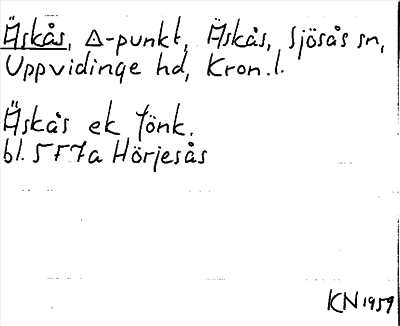 Äskås, △-punkt, Äskås, Sjösås sn,
Uppvidinge hd, Kron.l.
Äskås ek fönk.
bl. 5F7a Hörjesås
KN 1959